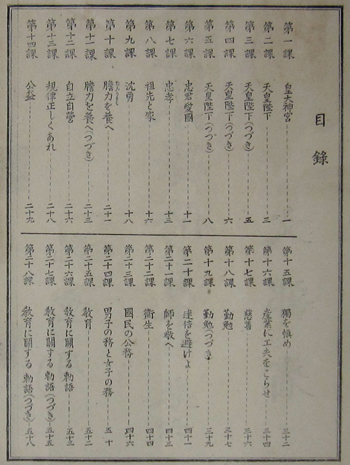 目錄
第一課 皇大神宮 一
第二課 天皇陛下 三
第三課 天皇陛下(つづき) 五
第四課 天皇陛下(つづき) 六
第五課 天皇陛下(つづき) 八
第六課 忠君愛國 十一
第七課 忠孝 十三
第八課 祖先と家 十六
第九課 沈勇 十八
第十課 膽力を養へ 二十一
第十一課 膽力を養へ(つづき) 二十三
第十二課 自立自營 二十六
第十三課 規律正しくあれ 二十八
第十四課 公益 二十九
第十五課 獨を愼め 三十二
第十六課 產業に工夫をこらせ 三十四
第十七課 慈善 三十六
第十八課 勤勉 三十七
第十九課 勤勉(つづき) 三十九
第二十課 迷信を避けよ 四十一
第二十一課 師を敬へ 四十三
第二十二課 衞生 四十四
第二十三課 國民の公務 四十六
第二十四課 男子の務と女子の務 五十
第二十五課 教育
第二十六課 教育に關する勅語
第二十七課 教育に關する勅語(つづき) 五十五
第二十八課 教育に關する勅語(つづき) 五十八